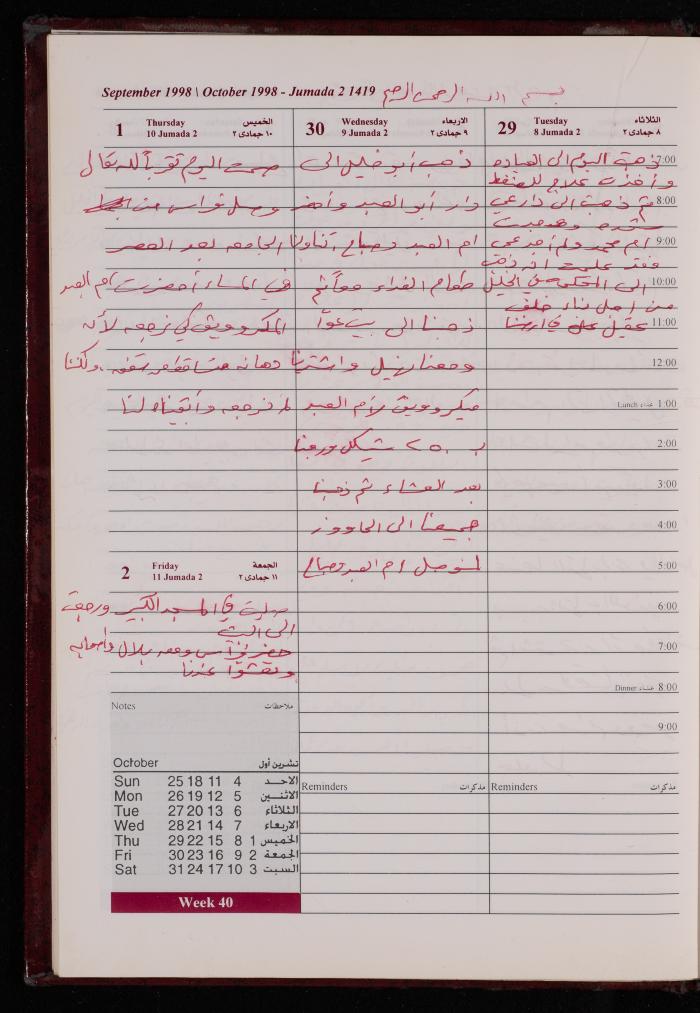 September 1998 \ October 1998 - Jumada 2 1419
بسم الله الرحمن الرحيم
الثلاثاء
Tuesday
29
٨ جمادى ٢
8 Jumada 2
7:00
ذهبت اليوم الى العياده
وأخذت علاج للضغط
8:00
ثم ذهبت الى دار عي
وقد
9:00
ام محمد ولم أجد عمي
فقد علمت انه ذهب
10:00
الى المحكمه في الخليل
من اجل بناء خلف
11:00
عقيل في ارضنا
12:00
Lunch غداء 1:00
2:00
3:00
4:00
5:00
6:00
7:00
Dinner عشاء 8:00
9:00
Reminders مذكرات
الاربعاء
Wednesday
30
٩ جمادى ٢
9 Jumada 2
ذهب أبو خليل الى
دار أبو العبد وأحضر
ام العبد وصباح وتناولنا
طعام الغداء معاً ثم
ذهبنا الى بيت عوا
ومعنا نبيل واشترينا
ميكروويف لأم العبد
ب ٢٥٠ شيكل ورجعنا
بعد العشاء ثم ذهبنا
جميعنا الى الحاووز
لنوصل ام العبد وصباح
Reminders مذكرات
الخميس
Thursday
1
١٠ جمادى ٢
10 Jumada 2
صمت اليوم تقرباً لله تعالى
وصل نواس من
الجامعه بعد العصر
في المساء أحضرت ام العبد
المكروويف كي نرجعه لأن
دهانه متساقط من سقفه ولكننا
لم نرجعه وأبقيناه لنا
الجمعة
Friday
2
١١ جمادى ٢
11 Jumada 2
صليت في المسجد الكبير ورجعت
الى البيت
حضر نواس ومعه بلال وأصحابه
وتعشوا عندنا
Notes ملاحظات
October تشرين أول
Sun 25 18 11 4 الاحد
Mon 26 19 12 5 الاثنين
Tue 27 20 13 6 الثلاثاء
Wed 28 21 14 7 الاربعاء
Thu 29 22 15 8 1 الخميس
Fri 30 23 16 9 2 الجمعة
Sat 31 24 17 10 3 السبت
Week 40